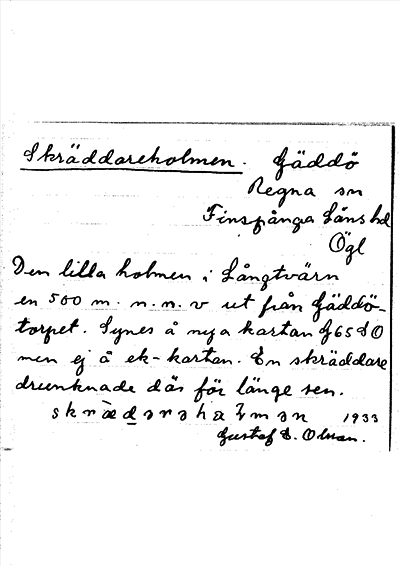 Skräddareholmen. Gäddö
Regna sn
Finspånga Läns hd
Ögl
Den lilla holmen i Långtvärn
en 500 m. n.n.v ut från Gäddö-
torpet. Synes å nya kartan G65SO
men ej å ek-kartan. En skräddare
drunknade där för länge sen.
1933
Gustaf E. Olsson.